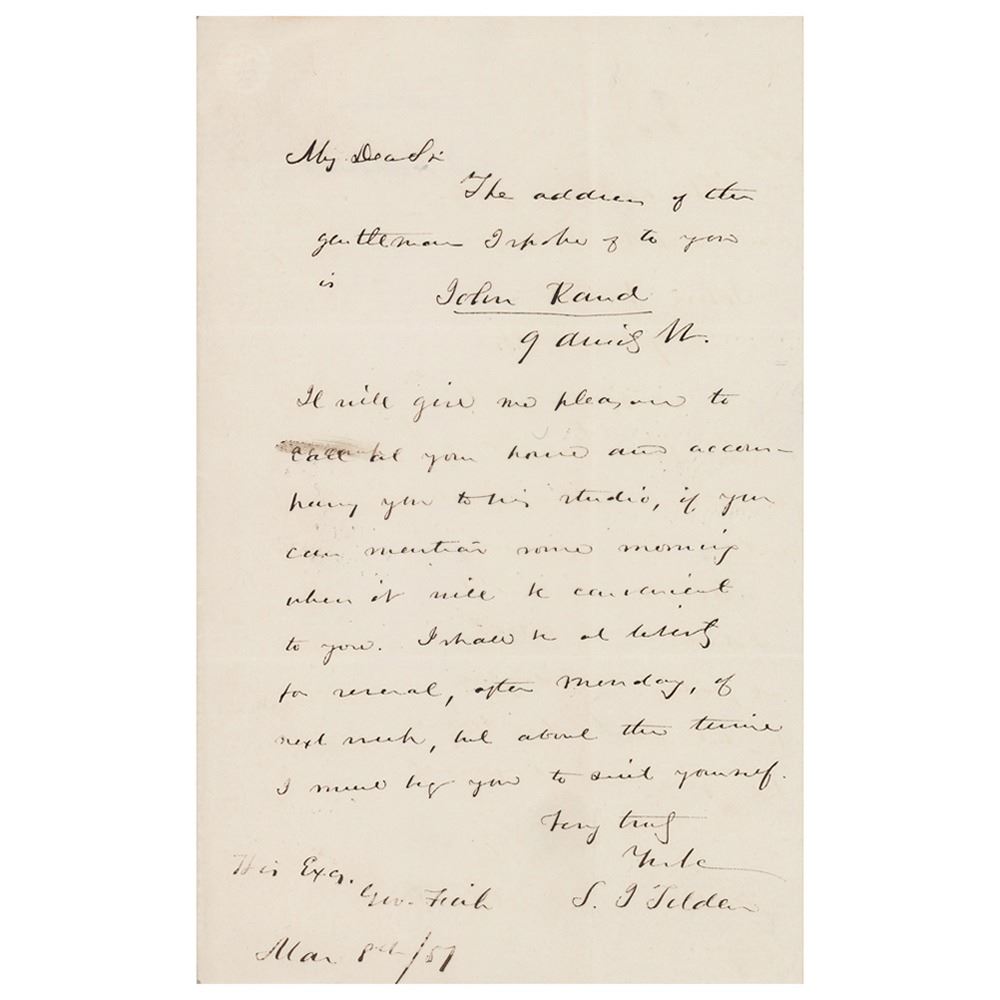 My Dear Sir
The address of the
gentleman I spoke of to you
is
John Rand
9 St.
It will give me pleasure to
call at your house and accom-
pany you to his studio, if you
can mention some morning
when it will be convenient
to you. I shall be at liberty
for several, after Monday, of
next week, but about the time
I must beg you to suit yourself.
Very truly
Yrs
S. J Tilden
His Excy.
Gov. Fish
Mar 8th/51